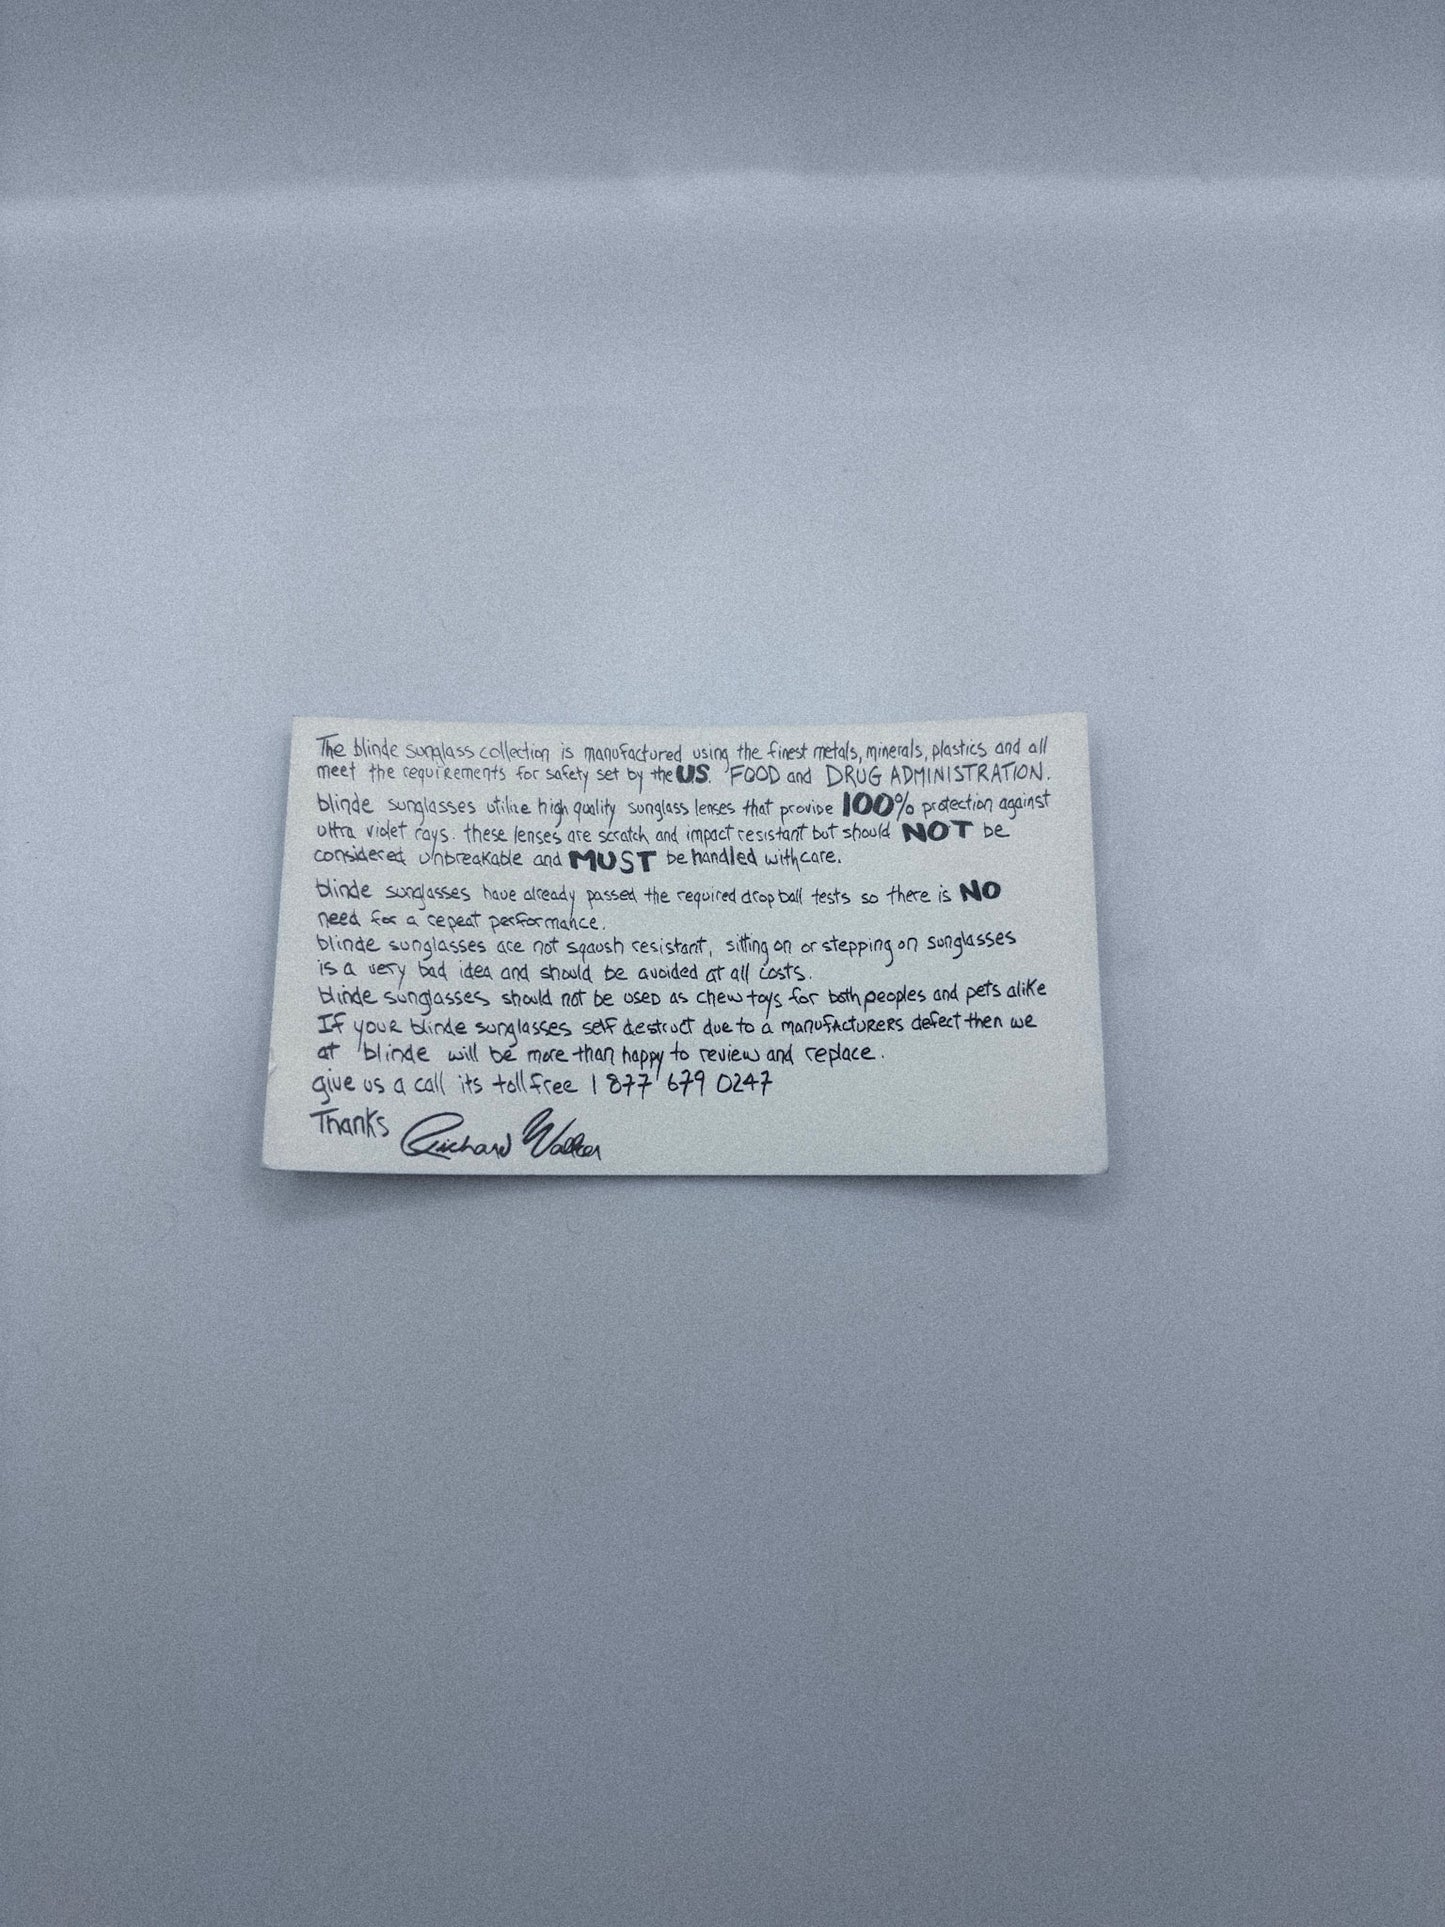 The blinde sunglass collection is manufactured using the finest metals, minerals, plastics and all
meet the requirements for safety set by the US. FOOD and DRUG ADMINISTRATION.
blinde sunglasses utilize high quality sunglass lenses that provide 100% protection against
ultra violet rays. these lenses are scratch and impact resistant but should NOT be
considered unbreakable and MUST be handled with care.
blinde sunglasses have already passed the required drop ball tests so there is NO
need for a repeat performance.
blinde sunglasses are not sqaush resistant, sitting on or stepping on sunglasses
is a very bad idea and should be avoided at all costs.
blinde sunglasses should not be used as chew toys for both peoples and pets alike
If your blinde sunglasses self destruct due to a manufacturers defect then we
at blinde will be more than happy to review and replace.
give us a call its toll free 1 877 679 0247
Thanks Richard Walker